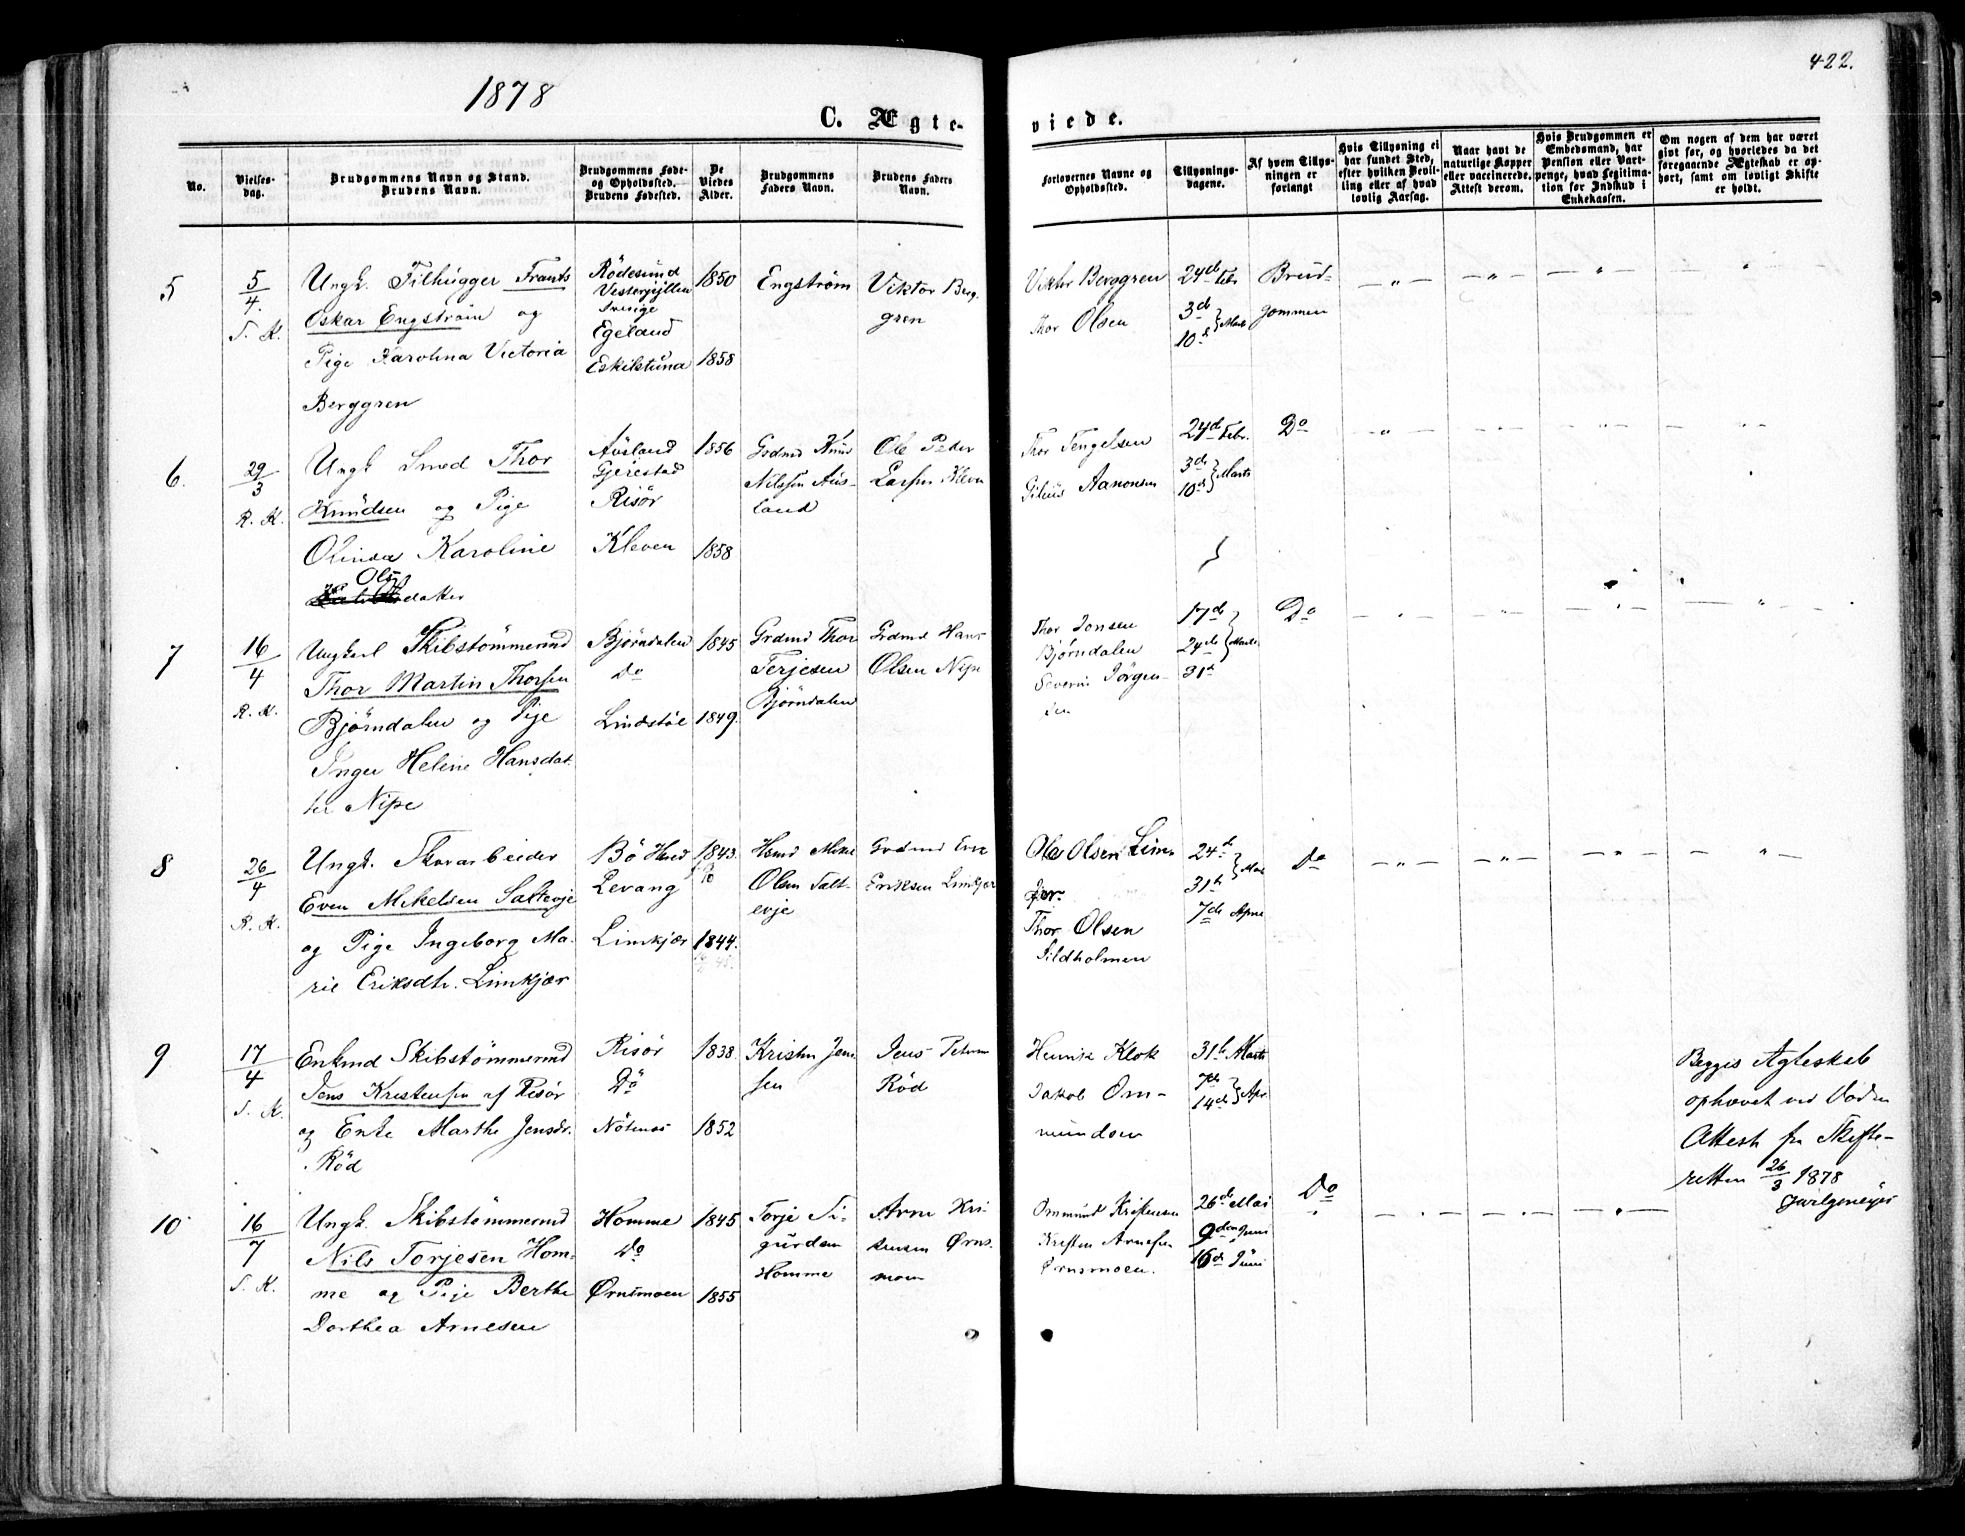 1878
422.
C. Ægte-
viede.
No.
Vielses-
dag.
Brudgommens Navn og Stand.
Brudens Navn.
Brudgommens Føde-
og Opholdssted.
Brudens Fødested.
De
Viedes
Alder.
Brudgommens
Faders Navn.
Brudens Faders
Navn.
Forlovernes Navne og
Opholdssted.
Tillysnings-
dagene.
Af hvem Tillys-
ningen er
forlangt
Hvis Tillysning ei
har fundet Sted,
efter hvilken Bevil-
ling eller af hvad
lovlig Aarsag.
Naar havt de
naturlige Kopper
eller vaccinerede.
Attest derom.
Hvis Brudgommen er
Embedsmand, har
Pension eller Vart-
penge, hvad Legitima-
tion for Indskud i
Enkekassen.
Om nogen af dem har været
givt før, og hvorledes da det
foregaaende Ægteskab er op-
hørt, samt om lovligt Skifte
er holdt.
5
5/4.
S. K.
Ungk. Filhugger Frants
Oskar Engström og
Pige Karolina Victoria
Berggren
Rödesund
Vestergyllen
Sverige
Egeland
Eskilstuna
1850
1858
Engström
Viktor Berg.
gren
Viktor Berggren
Thor Olsen
24de Febr
3de
10de } Marts
Brud-
gommen
6.
29/3
R. K.
Ungk. Smed Thor
Knudsen og Pige
Olinda Karoline
Ols
daker
Ausland
Gjerestad
Risör
Kleven
1856
1858
Grdmd Knud
Nilssen Aus-
land
Ole Peder
Larsen Kleven
Thor Tengelsen
Gilius Aanonsen
24de Febr.
3de
10de } Marts
Do
7
16/4
R. K.
Ungkarl Skibstömmermd
Thor Martin Thorsen
Björndalen og Pige
Inger Helene Hansdat
ter Nipe
Björndalen
Do
Lindstöl
1845
1849.
Grdmd Thor
Terjesen
Björndalen
Grdmd Hans
Olsen Nipe
Thor Jonsen
Björndalen
Severin Jörgen-
sen
17de
24de } Marts
31te
Do
8
26/4
R. K.
Ungk. Skovarbeider
Even Mikelsen Saltevje
og Pige Ingeborg Ma-
rie Eriksdtr. Limkjær
Bö Hred
Levang
Limkjær
1843.
1844.
Hsmd Mikel
Olsen Salt-
evje
Grdmd Erik
Eriksen Limkjær
Ole Olsen Lim-
kjær.
Thor Olsen
Sildholmen
24de
31te } Mar
7de April
Do
9
17/4
S. K.
Enkmd Skibstömmermd
Jens Kristensen af Risör
og Enke Marthe Jensdr.
Röd
Risör
Do
Nötenes
1838.
1852
Kristen Jen
sen
Jens Peterson
Röd
Henrik Klok
Jakob Om-
mundsen
31te Marts
7de
14de } Apr.
Begges Ægteskab
ophævet ved Döden
Attest fra Skifte-
retten 26/3 1878
10
16/7
S. K.
Ungk. Skibstömmermd
Nils Torjesen Hom-
me og Pige Berthe
Dorthea Arnesen
Homme
Do
Örnsmoen
1845
1855
Torje Si-
gurdsen
Homme
Arne Kri-
stensen Örns-
moen
Ommund Kristensen
Kristen Arnesen
Örnsmoen.
26de Mai
9den Juni
16de Juni
Do